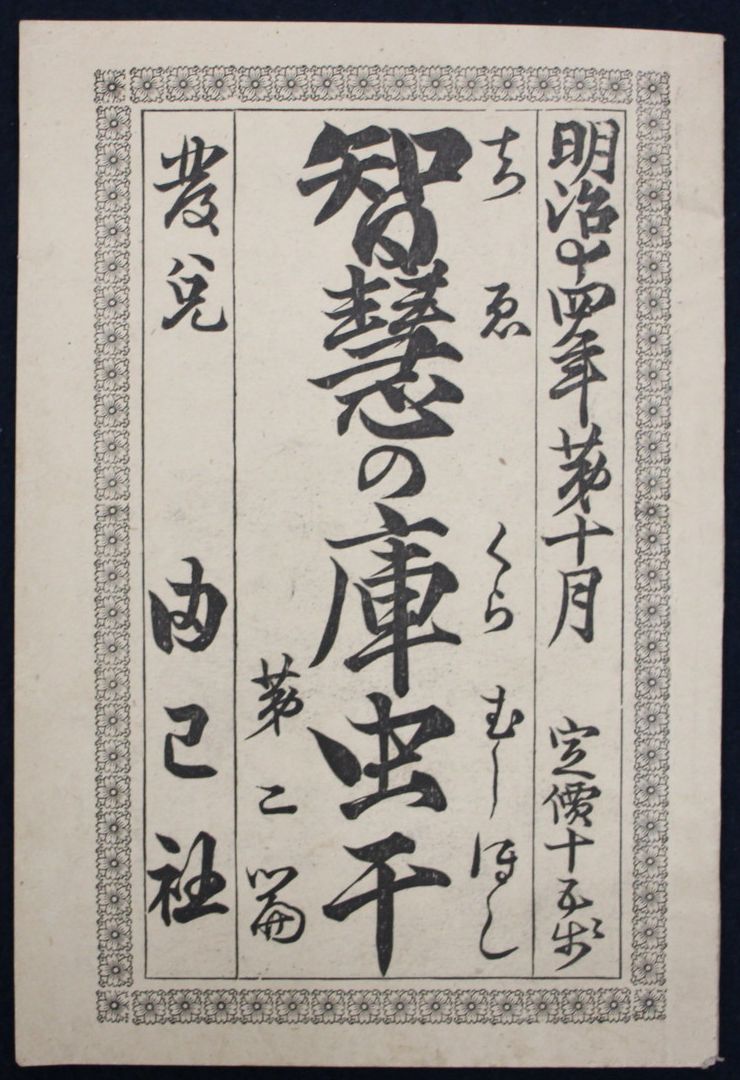 明治十四年第十月 定價十五銭
ちゑ くら むしほし
智慧の庫虫干
第二篇
發兌 己社